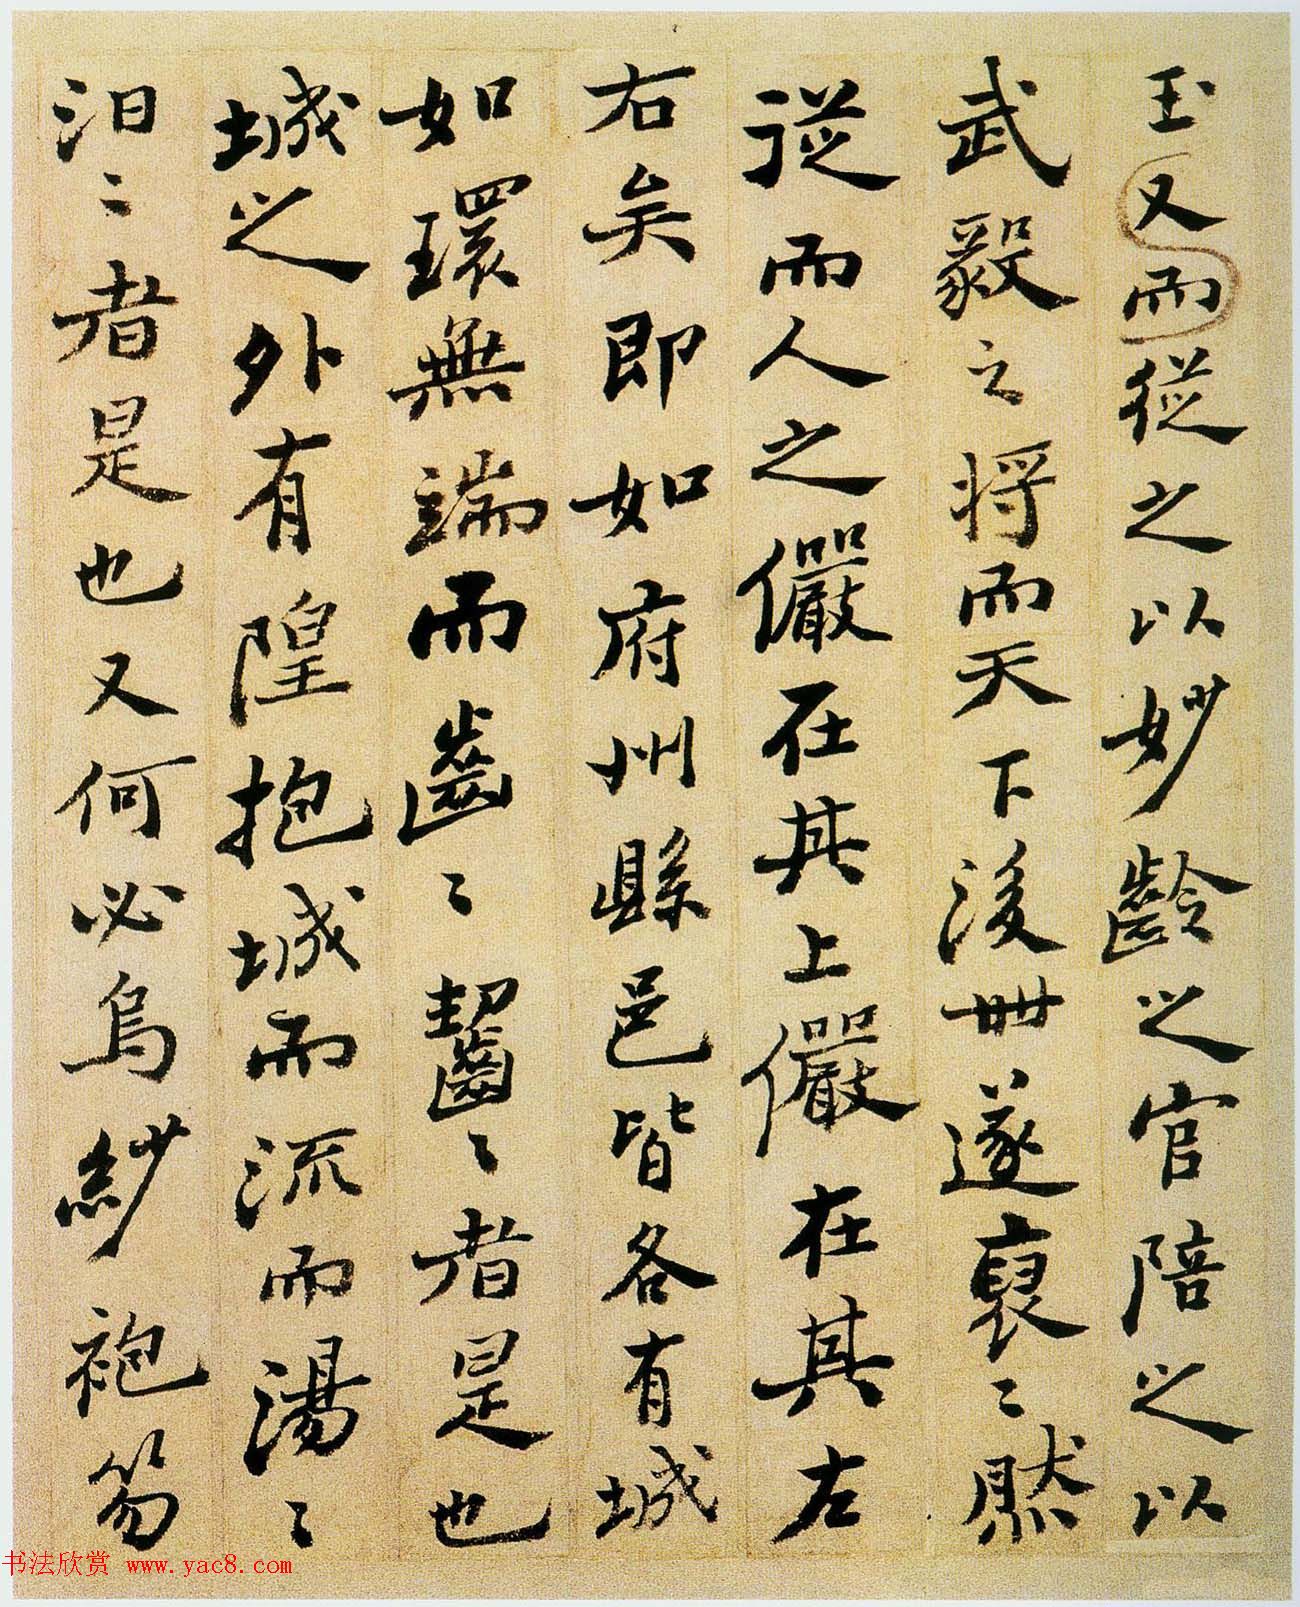 玉又而從之以妙齡之官陪之以
武毅之將而天下後世遂裒〻然
從而人之儼在其上儼在其左
右矣即如府州縣邑皆各有城
如環無端而齒〻齧〻者是也
城之外有隍抱城而流而湯〻
汨〻者是也又何必烏紗袍笏
书法欣赏 www.yac8.com